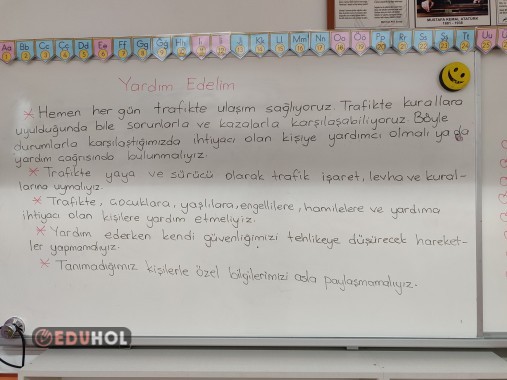 MUSTAFA KEMAL ATATÜRK
1881 - 1938
Aa Bb Cc Çç Dd Ee Ff Gg Ğğ Hh Iı İi Jj Kk Ll Mm Nn Oo Öö Pp Rr Ss Şş Tt Uu
Yardım Edelim
* Hemen her gün trafikte ulaşım sağlıyoruz. Trafikte kurallara
uyulduğunda bile sorunlarla ve kazalarla karşılaşabiliyoruz. Böyle
durumlarla karşılaştığımızda ihtiyacı olan kişiye yardımcı olmalı ya da
yardım çağrısında bulunmalıyız.
* Trafikte yaya ve sürücü olarak trafik işaret, levha ve kural-
larına uymalıyız.
* Trafikte, çocuklara, yaşlılara, engellilere, hamilelere ve yardıma
ihtiyacı olan kişilere yardım etmeliyiz.
* Yardım ederken kendi güvenliğimizi tehlikeye düşürecek hareket-
ler yapmamalıyız.
* Tanımadığımız kişilerle özel bilgilerimizi asla paylaşmamalıyız.
EDUHOL